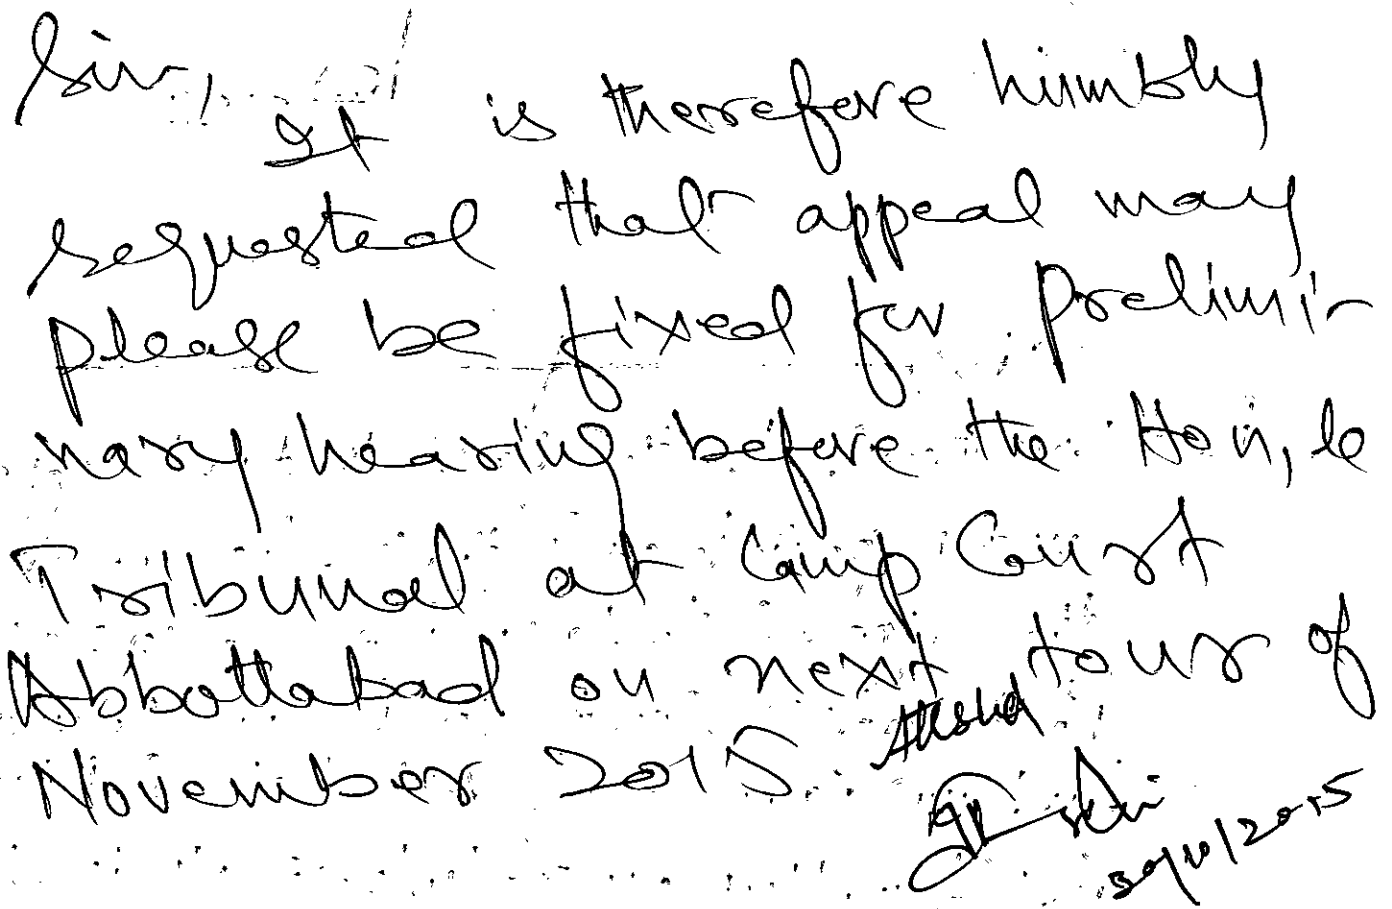 Sir,
It is therefore humbly
requested that appeal may
please be fixed for prelimi-
nary hearing before the Hon,le
Tribunal at Camp Court
Abbottabad on next tour of
November 2015.
Attested